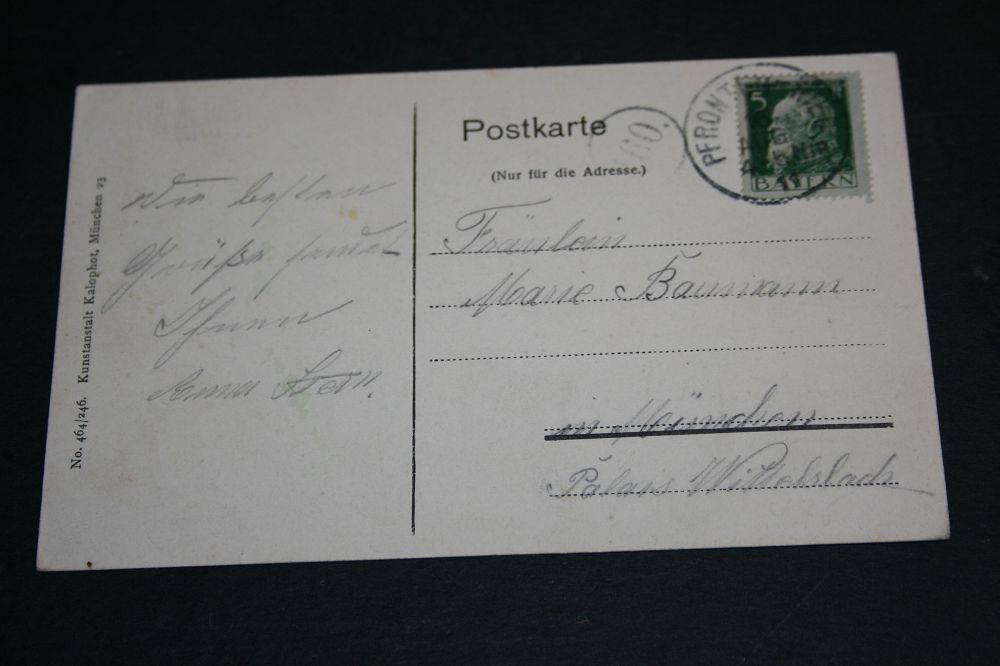 No. 464/246. Kunstanstalt Kalophot, München 23
Die besten
Grüße sendet
Ihnen
Anna Stern.
Postkarte
(Nur für die Adresse.)
Fräulein
Marie Baumann
in München
Palais Wittelsbach
160.
PFRONTEN
5
BAYERN